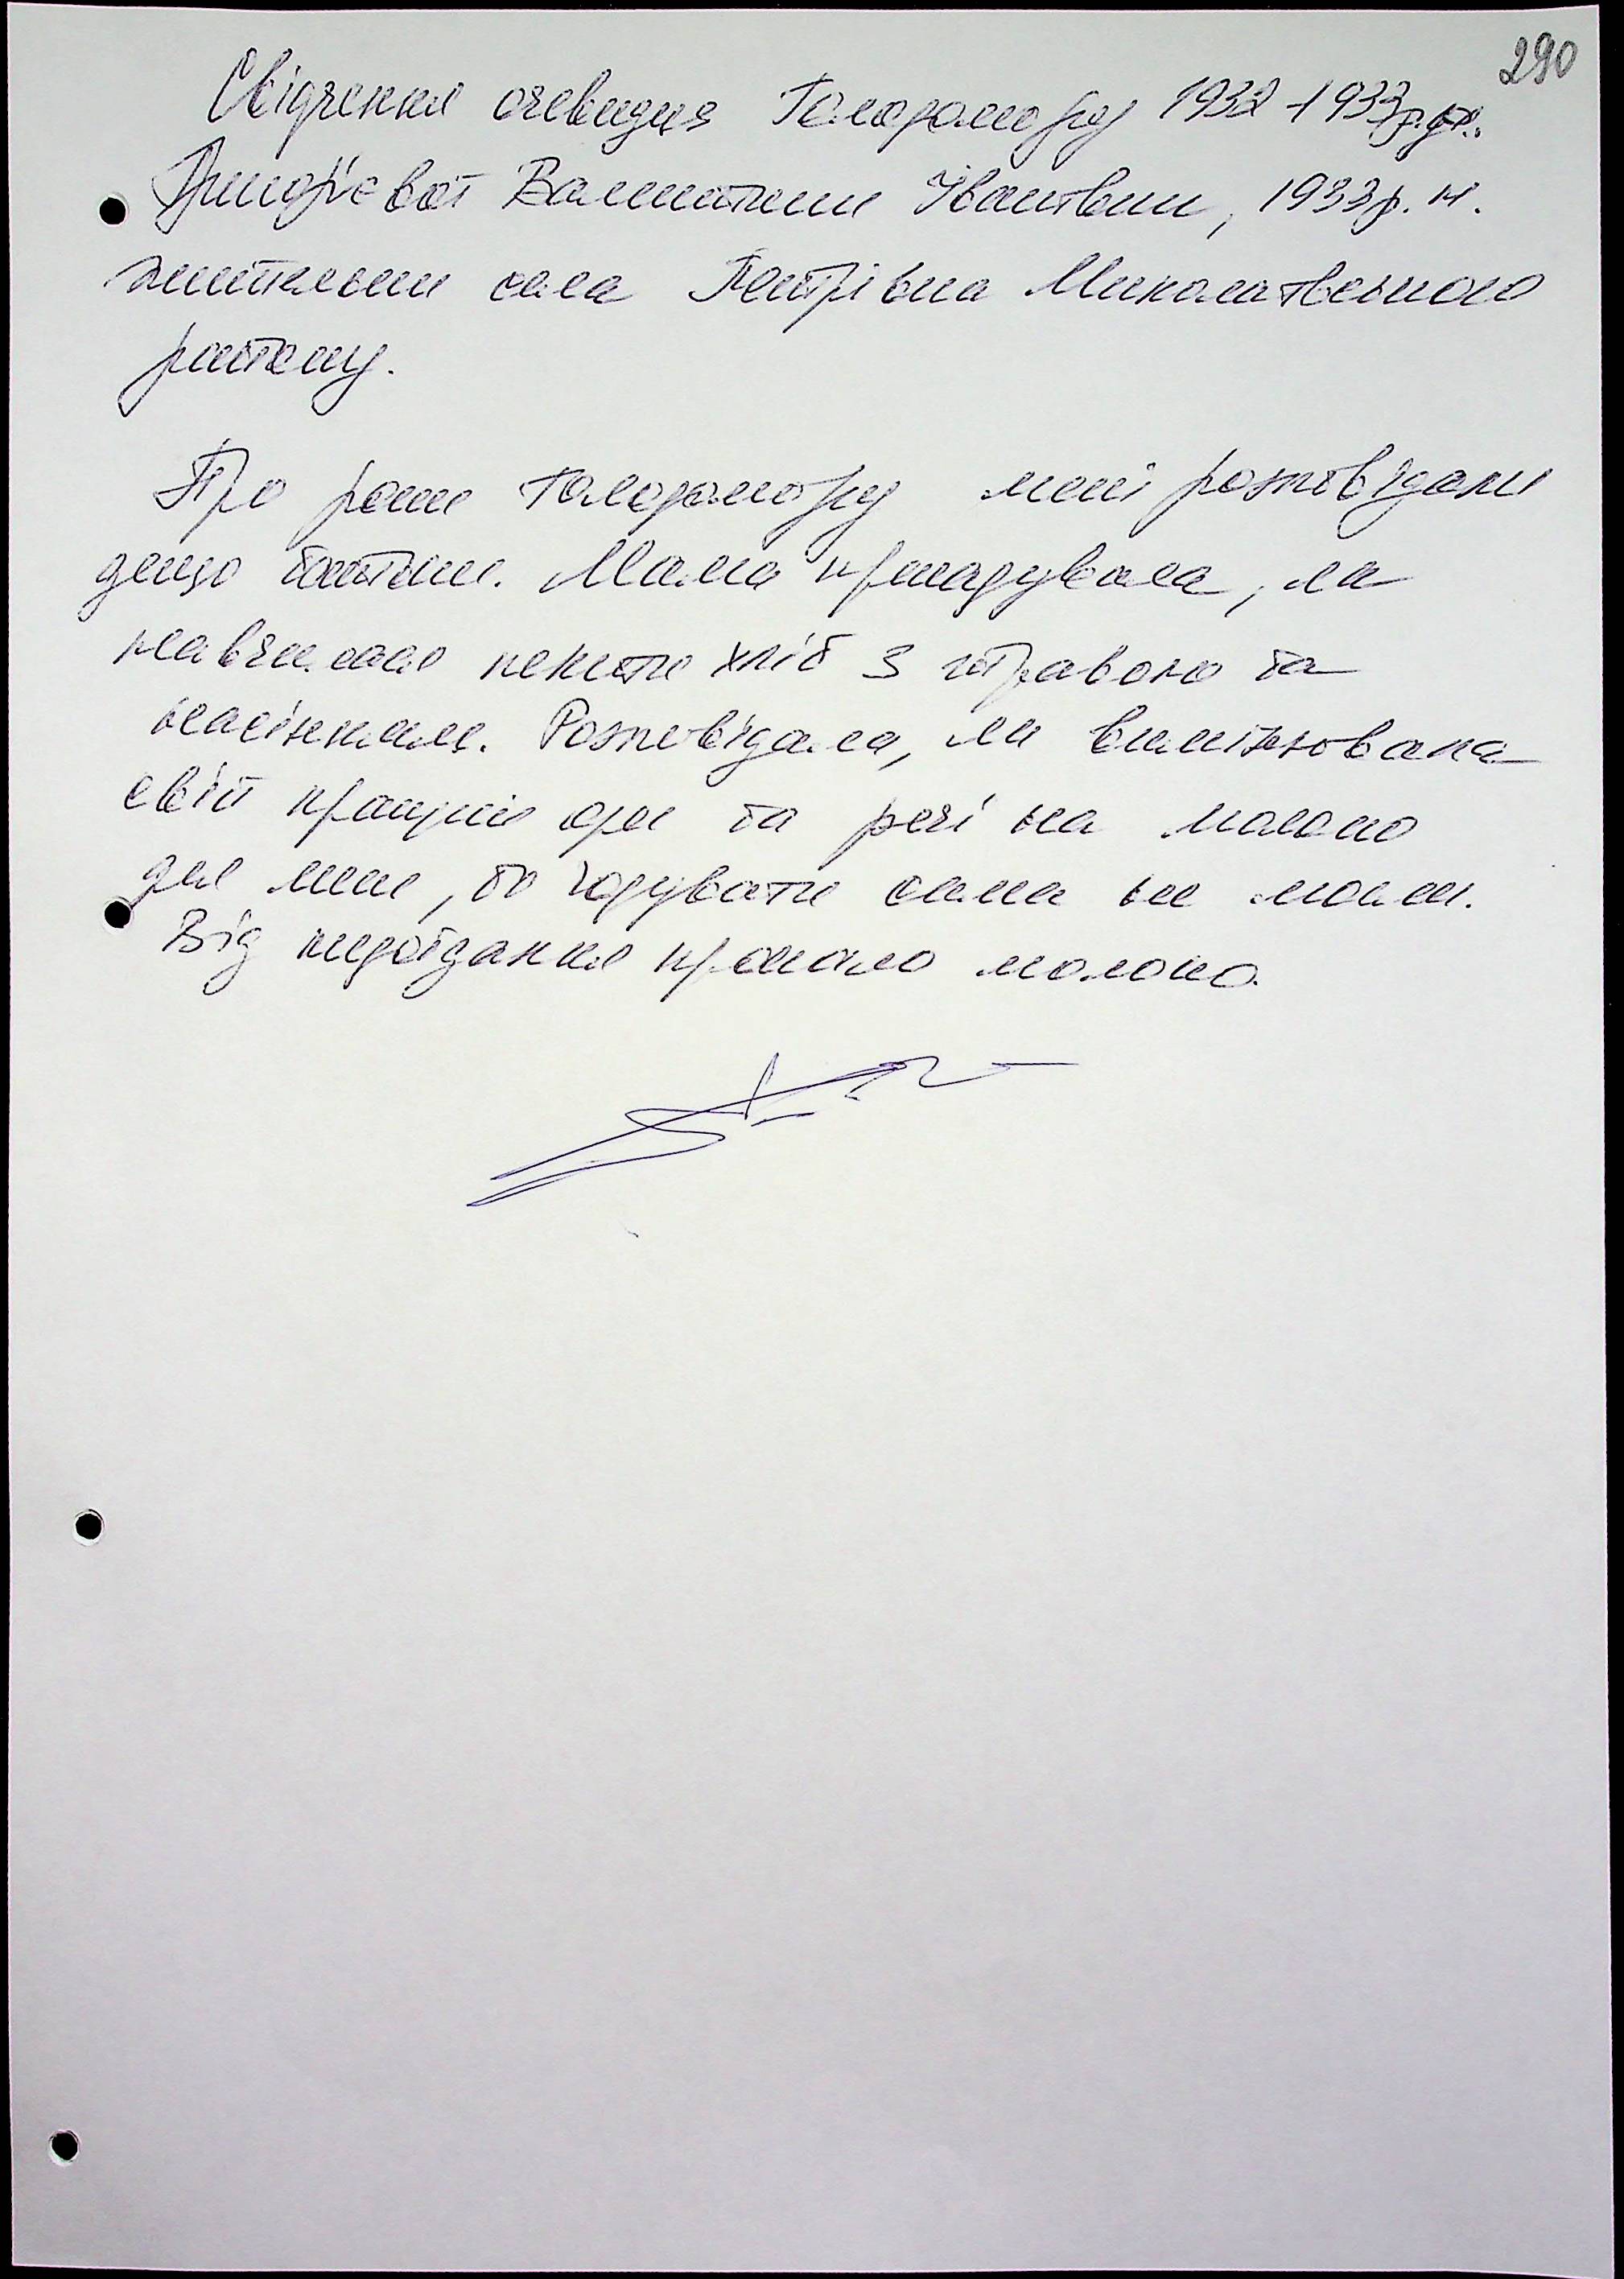 290
Свідчення очевидця Голодомору 1932-1933р.р.
Валентини Іванівни, 1933р. н.
жительки села Петрівка Миколаївського
району.
Про роки Голодомору мені розповідали
дещо батьки. Мама пригадувала, як
навчилась пекти хліб з травою та
насінням. Розповідала, як вимінювала
свій кращий одяг та речі на молоко
для мене, бо годувати сама не могла.
Від недоїдання пропало молоко.